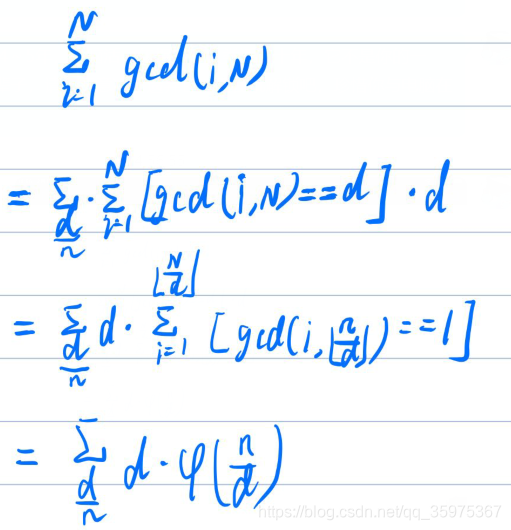 \sum_{i=1}^{N} gcd(i,N)
= \sum_{\frac{d}{n}} \cdot \sum_{i=1}^{N} [gcd(i,N)==d] \cdot d
= \sum_{\frac{d}{n}} d \cdot \sum_{i=1}^{\lfloor \frac{N}{d} \rfloor} [gcd(i, \lfloor \frac{n}{d} \rfloor)==1]
= \sum_{\frac{d}{n}} d \cdot \varphi(\frac{n}{d})
https://blog.csdn.net/qq_35975367